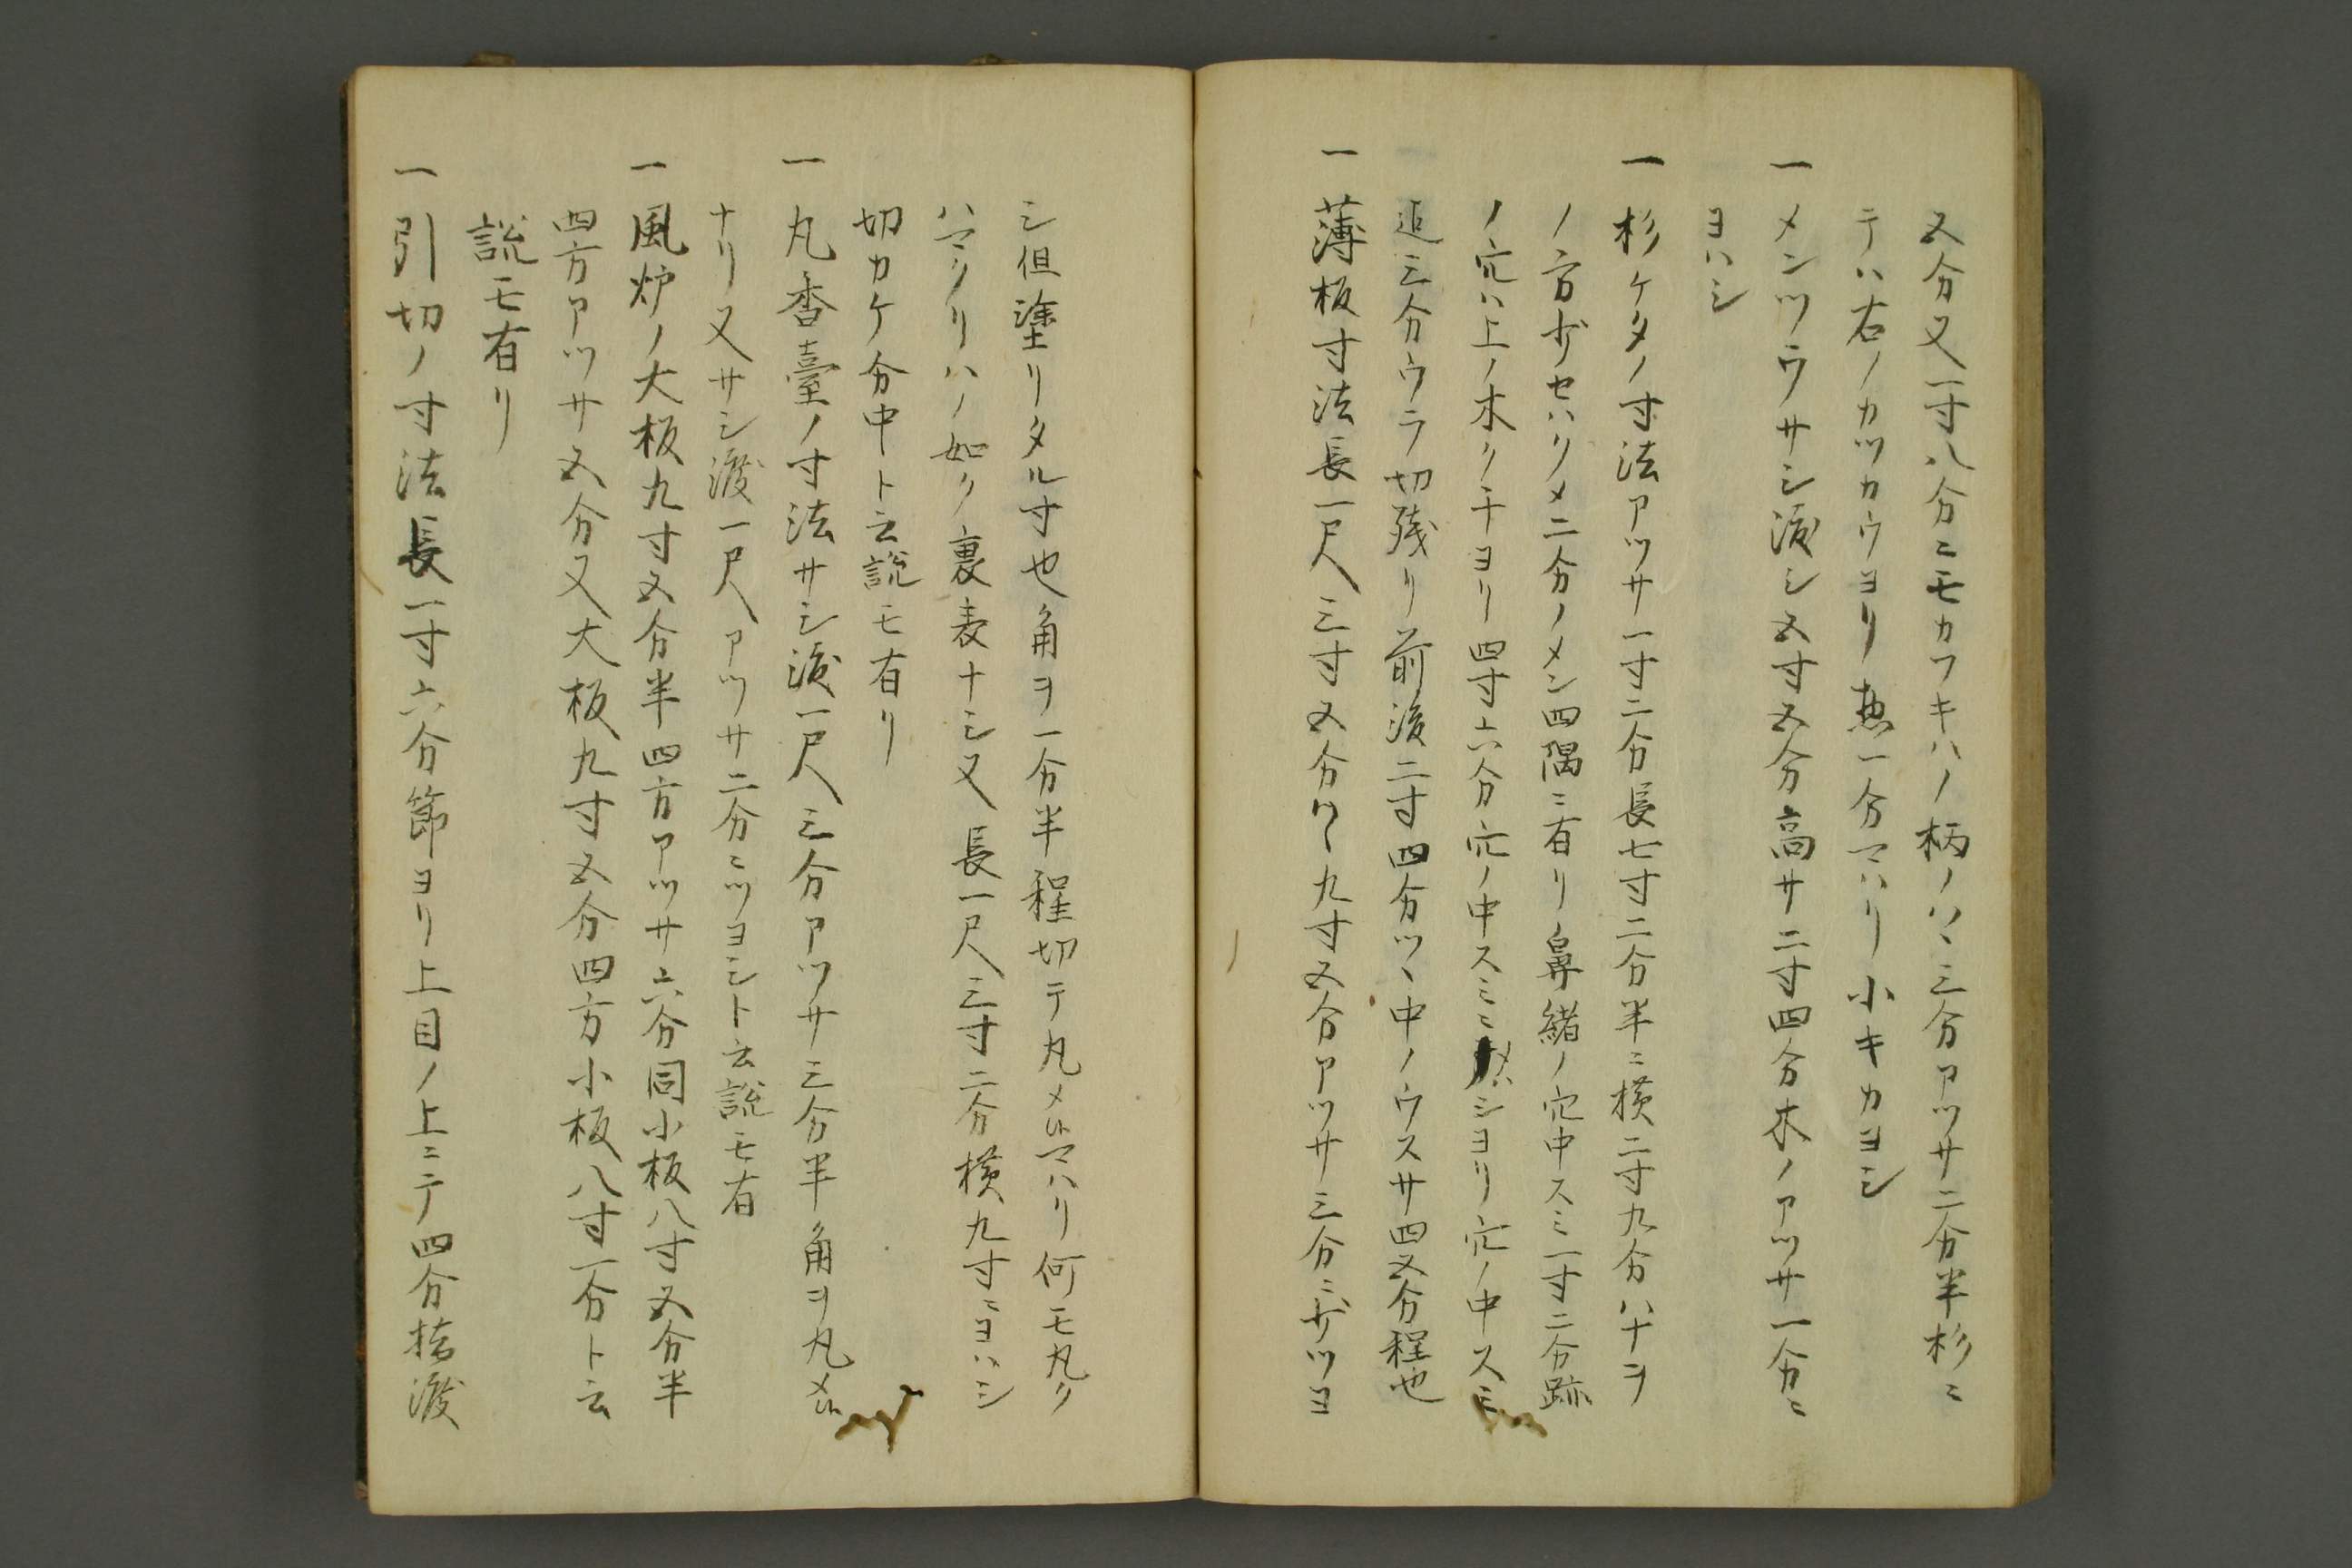 五分又一寸八分ニモカフキハノ柄ノハヽ三分アツサ二分半杉ニ
テハ右ノカツカウヨリ惣一分マハリ小キカヨシ
一メンツウサシ渡シ五寸五分高サ二寸四分木ノアツサ一分ニ
ヨハシ
一杉ケタノ寸法アツサ一寸二分長七寸二分半ニ横二寸九分ハナヲ
ノ方少セハリメ二分ノメン四隅ニ有リ鼻緒ノ穴中スミ一寸二分跡
ノ穴ハ上ノ木クチヨリ四寸六分穴ノ中スミニ シヨリ穴ノ中スミ
迄三分ウラ切残リ前後二寸四分ツヽ中ノウスサ四五分程也
一薄板寸法長一尺三寸五分 九寸五分アツサ三分ニ少ツヨ
シ但塗リタル寸也角ヲ一分半程切テ丸メ マハリ何モ丸ク
ハマクリハノ如ク裏表ナシ又長一尺三寸二分横九寸ニヨハシ
切カケ分中ト云説モ有リ
一丸香臺ノ寸法サシ渡一尺三分アツサ三分半角ヲ丸メ
ナリ又サシ渡一尺アツサ二分ニツヨシト云説モ有
一風炉ノ大板九寸五分半四方アツサ六分同小板八寸五分半
四方アツサ五分又大板九寸五分四方小板八寸一分ト云
説モ有リ
一引切ノ寸法長一寸六分節ヨリ上目ノ上ニテ四分 渡